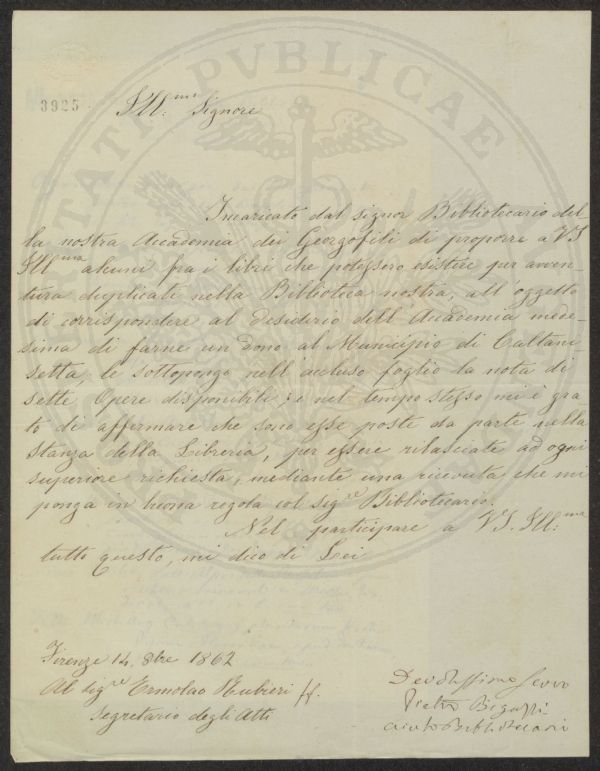 3925
Ill.mo Signore
Incaricato dal signor Bibliotecario del-
la nostra Accademia dei Georgofili di proporre a VS
Illma alcuni fra i libri che potessero esistere per avven-
tura duplicati nella Biblioteca nostra, all'oggetto
di corrispondere al desiderio dell'Accademia mede-
sima di farne un dono al Municipio di Caltani-
setta, le sottopongo nell'accluso foglio la nota di
sette Opere disponibili; e nel tempo stesso mi è gra-
to di affermare che sono esse poste da parte nella
stanza della Libreria, per essere rilasciate ad ogni
superiore richiesta, mediante una ricevuta che mi
ponga in buona regola col sigre Bibliotecario.
Nel participare a VS. Ill:ma
tutto questo, mi dico di Lei
Firenze 14. 8bre 1862
Al sigre Ermolao Rubieri ff.
Segretario degli Atti
Devotissimo Servo
Pietro Bigazzi
aiuto Bibliotecario
PVBLICAE